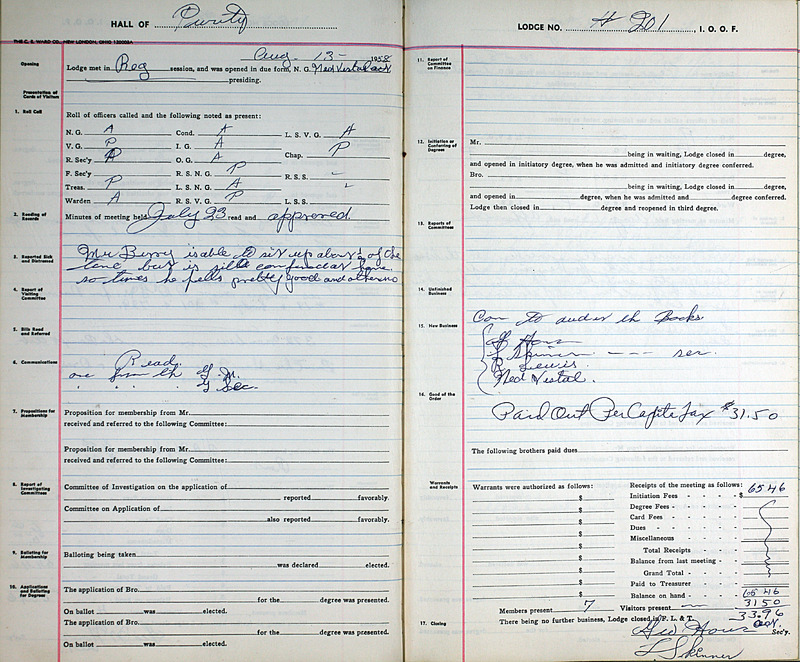 HALL OF Purity
THE C. E. WARD CO., NEW LONDON, OHIO
Aug. 13- 1958
Opening
Lodge met in Reg session, and was opened in due form, N. G. Ned Vestal
presiding.
Presentation of Cards of Visitors
1. Roll Call
Roll of officers called and the following noted as present:
N. G. A Cond. A L. S. V. G. A
V. G. P I. G. A Chap. P
R. Sec'y P O. G. A
F. Sec'y R. S. N. G. P R. S. S. -
Treas. P L. S. N. G. A
Warden A R. S. V. G. P
2. Reading of Records
Minutes of meeting held July 23 read and approved.
3. Reported Sick and Distressed
Mr Berry is able to sit up about ½ of the
time, but is still
so times he feels pretty good and other no
4. Report of Visiting Committee
5. Bills Read and Referred
6. Communications
Read
one from the G. M.
" " " G Sec.
7. Propositions for Membership
Proposition for membership from Mr.
received and referred to the following Committee:
Proposition for membership from Mr.
received and referred to the following Committee:
8. Report of Investigating Committees
Committee of Investigation on the application of
reported favorably.
Committee on Application of
also reported favorably.
9. Balloting for Membership
Balloting being taken
was declared elected.
10. Applications and Balloting for Degrees
The application of Bro.
for the degree was presented.
On ballot was elected.
The application of Bro.
for the degree was presented.
On ballot was elected.
LODGE NO. # 201, I. O. O. F.
11. Report of Committee on Finance
12. Initiation or Conferring of Degrees
Mr.
being in waiting, Lodge closed in degree,
and opened in initiatory degree, when he was admitted and initiatory degree conferred.
Bro.
being in waiting, Lodge closed in degree,
and opened in degree, when he was admitted and degree conferred.
Lodge then closed in degree and reopened in third degree.
13. Reports of Committees
14. Unfinished Business
Com to audit the Books
15. New Business
Skinner ---- sec.
R Lewis.
Ned Vestal.
16. Good of the Order
Paid Out Per Capita Tax $31.50
The following brothers paid dues
Warrants and Receipts
Warrants were authorized as follows:
$
$
$
$
$
$
$
$
$
Receipts of the meeting as follows: 65 46
Initiation Fees - - - - - $
Degree Fees - - - - -
Card Fees - - - - -
Dues - - - - -
Miscellaneous - - - - -
Total Receipts
Balance from last meeting - -
Grand Total - - -
Paid to Treasurer
Balance on hand - - 65 46
31 50
Members present 7 Visitors present 33.96
17. Closing
There being no further business, Lodge closed in F. L. & T.
Sec'y.
L Skinner